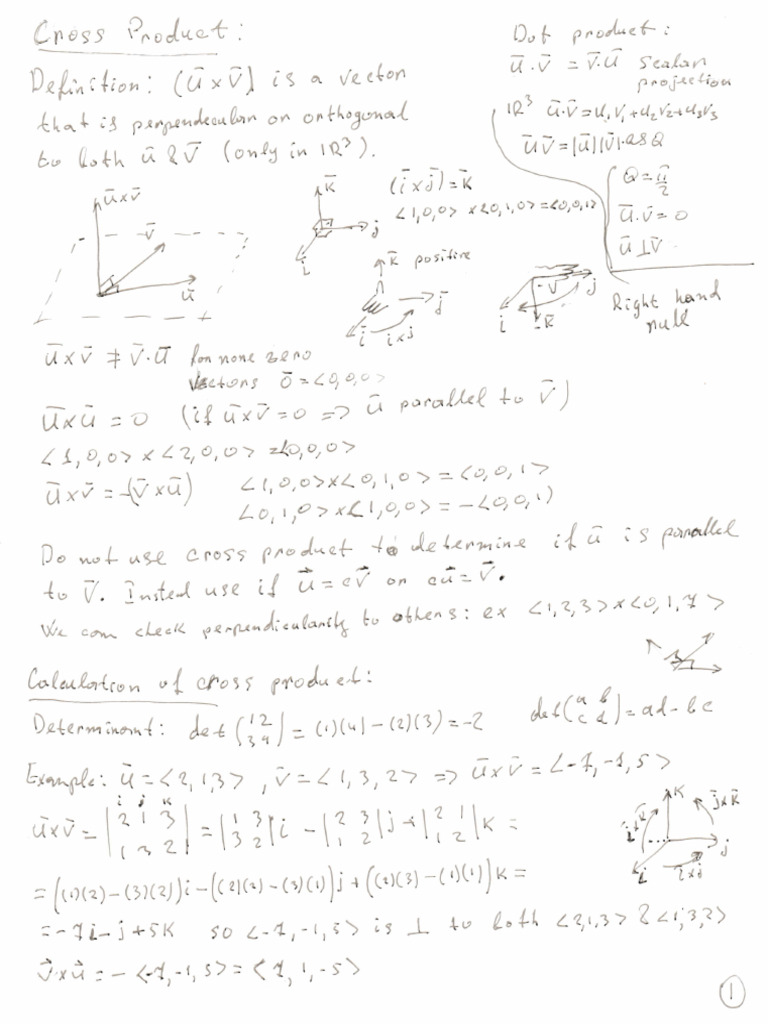 Cross Product:
Definition: (ū x v̄) is a vector
that is perpendecular or orthogonal
to both ū & v̄ (only in IR³).
Dot product:
ū·v̄ = v̄·ū scalar
projection
IR³ ū·v̄ = u₁v₁+u₂v₂+u₃v₃
ūv̄ = |ū||v̄|·cos Q
Q = π/2
ū·v̄ = 0
ū ⊥ v̄
Right hand
rull
ūxv̄
v̄
ū
k̄
j
i
(īxj̄) = k̄
<1,0,0> x <0,1,0> = <0,0,1>
k̄ positive
j̄
ī
ixj
-v
j
i
-k̄
ū x v̄ ≠ v̄·ū for none zero
vectors 0̄ = <0,0,0>
ū x ū = 0 (if ū x v̄ = 0 => ū parallel to v̄)
<1,0,0> x <2,0,0> = <0,0,0>
ū x v̄ = -(v̄ x ū) <1,0,0> x <0,1,0> = <0,0,1>
<0,1,0> x <1,0,0> = -<0,0,1>
Do not use cross product to determine if ū is parallel
to v̄. Insted use if u⃗ = cv⃗ or cu⃗ = v⃗.
We can check perpendicularity to others: ex <1,2,3> x <0,1,7>
Calculation of cross product:
Determinant: det (1 2 / 3 4) = (1)(4) - (2)(3) = -2 det (a b / c d) = ad - bc
Example: ū = <2,1,3>, v̄ = <1,3,2> => ū x v̄ = <-7,-1,5>
i j k
ū x v̄ = |2 1 3 / 1 3 2| = |1 3 / 3 2| i - |2 3 / 1 2| j + |2 1 / 1 2| k =
k
j̄xk̄
ixk̄
j
i
ixj
= ((1)(2) - (3)(2))i - ((2)(2) - (3)(1))j + ((2)(3) - (1)(1))k =
= -7i - j + 5k so <-7,-1,5> is ⊥ to both <2,1,3> & <1,3,2>
v⃗ x u⃗ = - <-7,-1,5> = <7,1,-5>
1